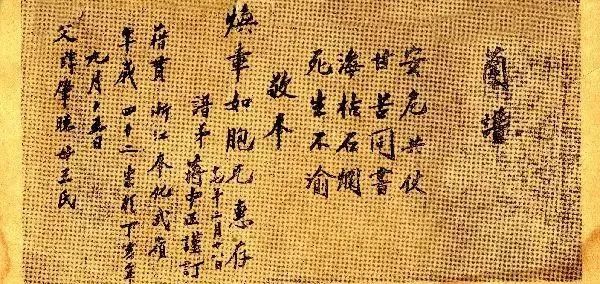 蘭譜
安危共仗
甘苦同嘗
海枯石爛
死生不渝
敬奉
煥章如胞兄惠存
譜弟 蔣中正謹訂
年二月十八日
籍貫 浙江奉化武嶺
年歲 四十二 生於丁亥年
九月十五日
父諱肇聰母王氏